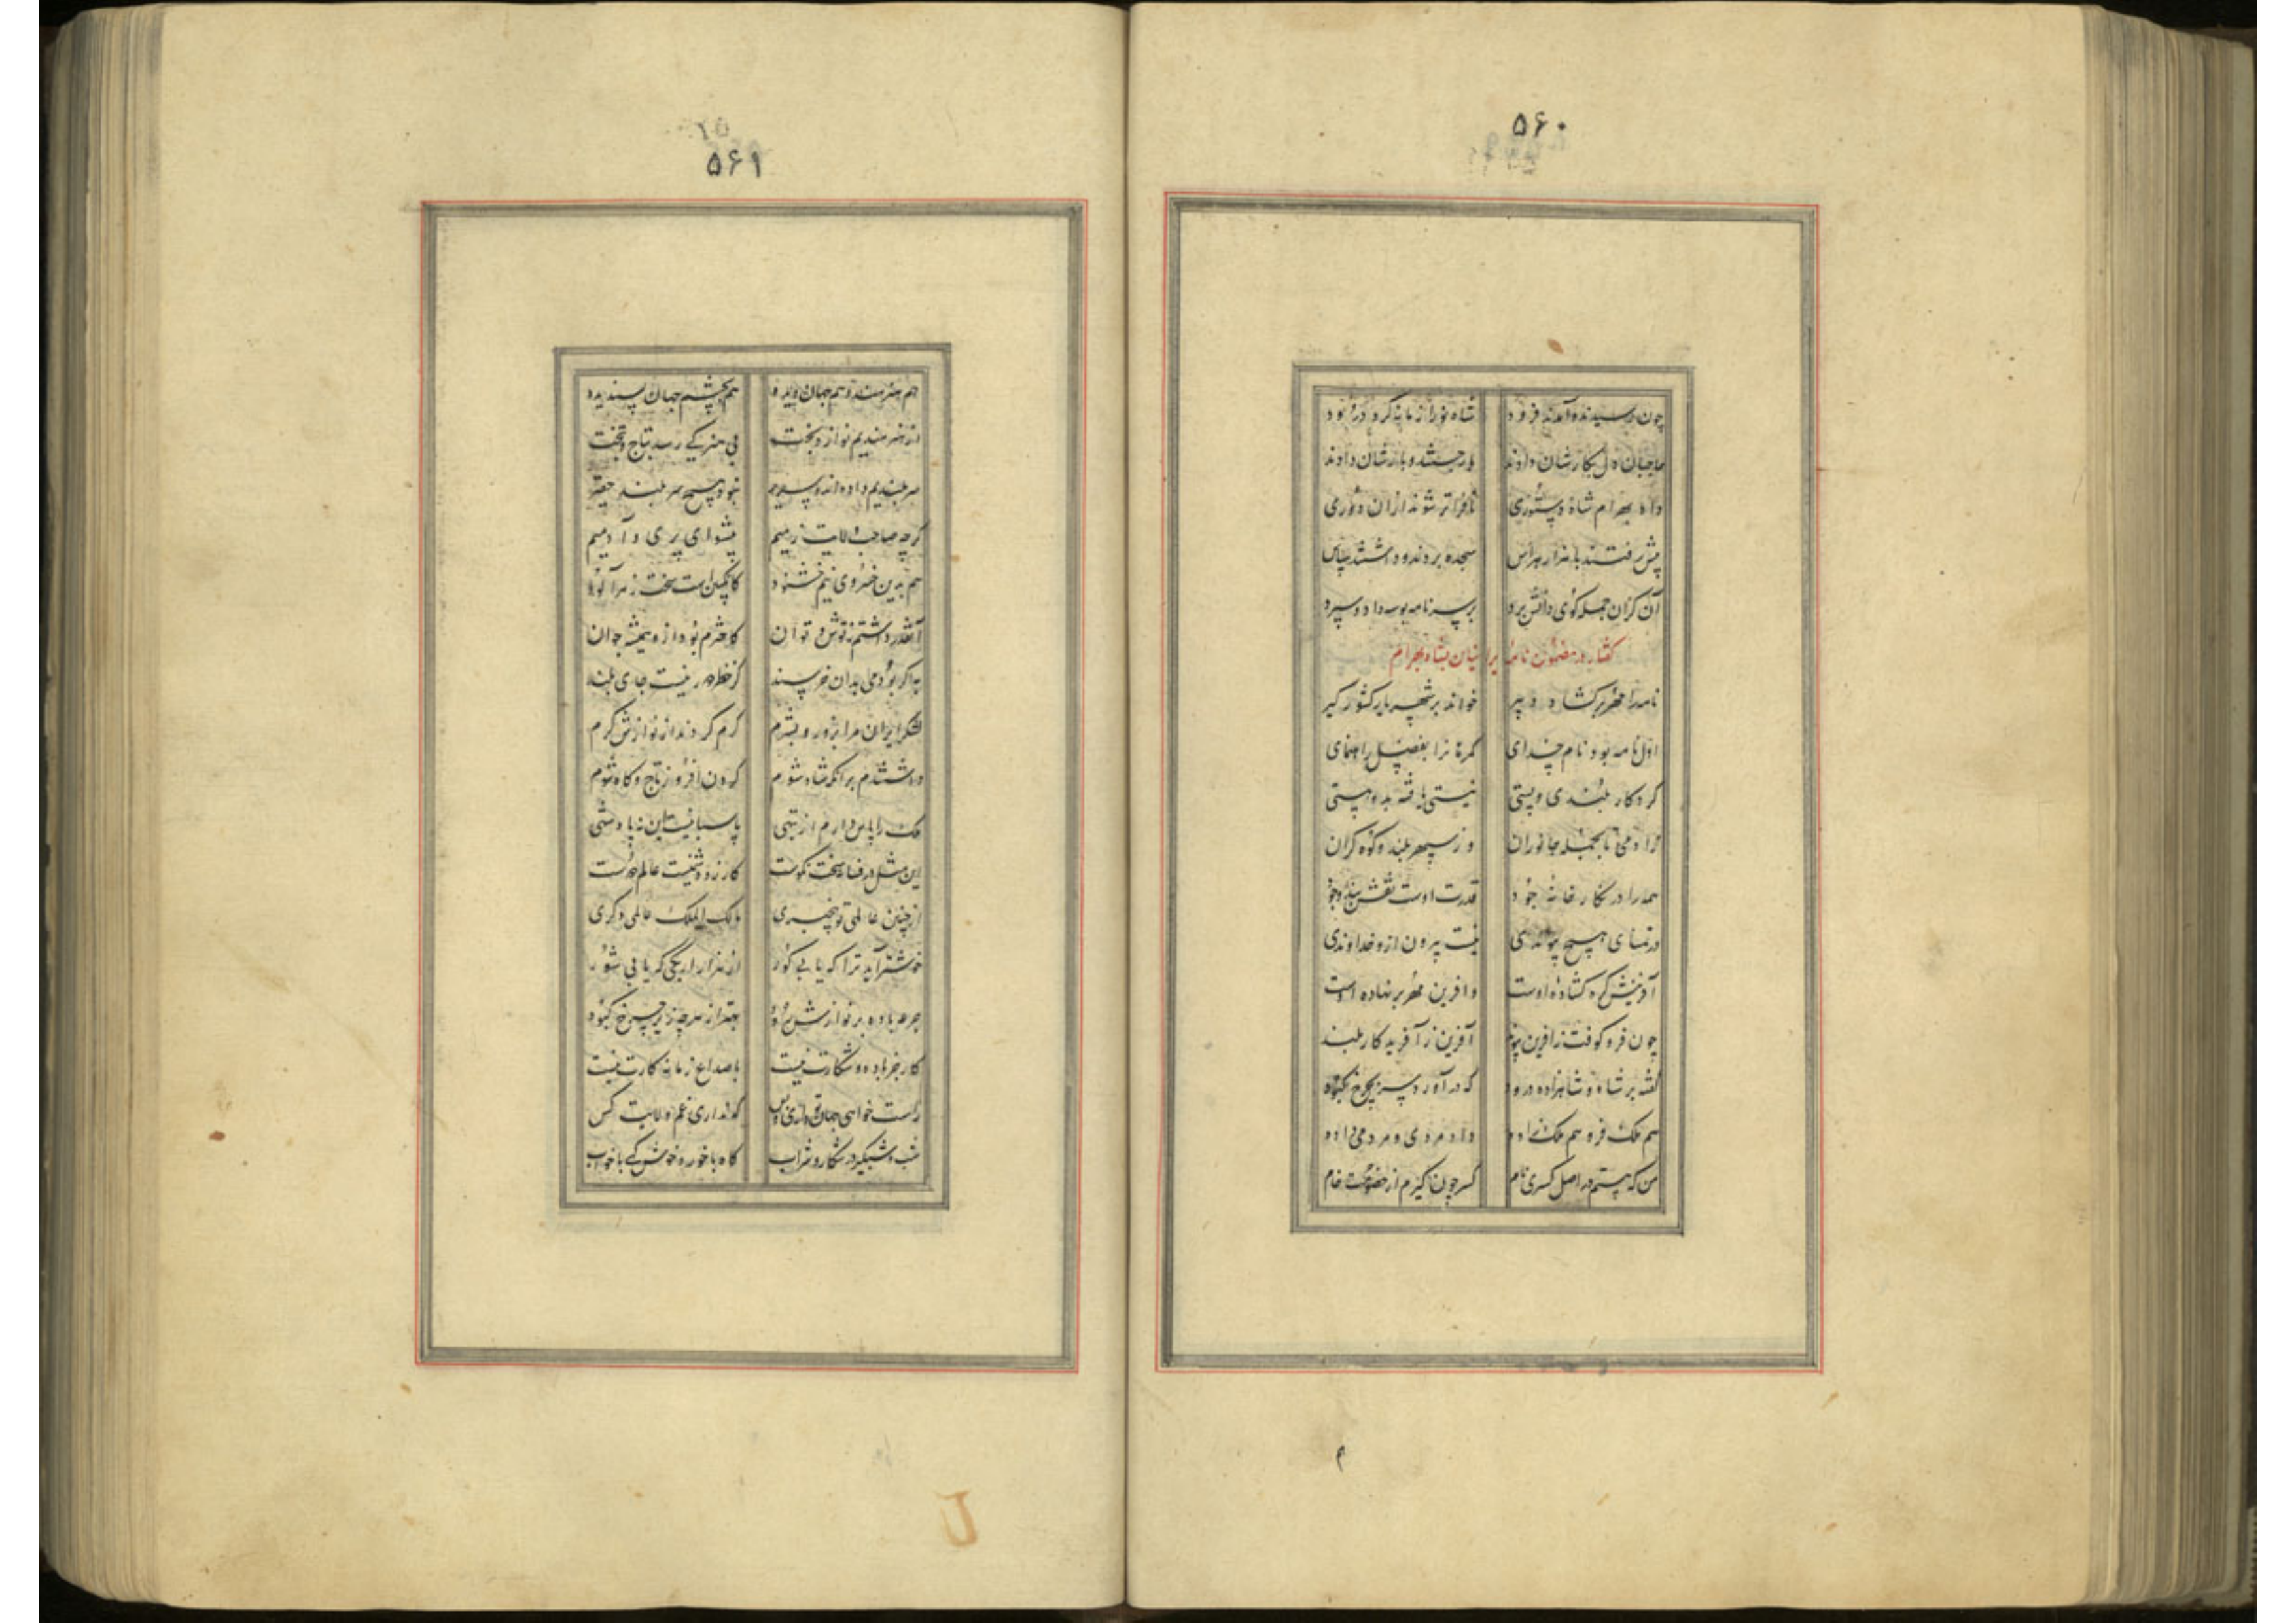 ۵۶۰
چون رسیدند و آمدند فرود شاه نو را زمانه کرد درود
حاجبان دل بکارشان دادند بار جستند و بارشان دادند
داد بهرام شاه دستوری تا فراتر شوند ازان دوری
پیش رفتند با هزار هراس سجده بردند و داشتند سپاس
آن کزان جمله کوی دانش برد بر سر نامه بوسه داد و سپرد
کفتار در مضمون نامه ایرانیان بشاه بهرام
نامه را مهر برکشاد دبیر خواند بر شهریار کشور کیر
اول نامه بود نام خدای کمرهانرا بفضل راهنمای
کردکار بلندی و پستی نیستی یافته بدو هستی
ز آدمی تا بجمله جانوران وز سپهر بلند و کوه کران
همه را در نکارخانه جود قدرت اوست نقش بند وجود
در تمنای هیچ پیوندی نیست بیرون ازو خداوندی
آفرینش کره کشاده اوست وافرین مهر بر نهاده اوست
چون فرو کوفت زآفرین پیوند آفرین ز آفریدکار بلند
کفته بر شاه و شاهزاده درود که درآورد سر بچرخ کبود
هم ملک فر و هم ملک زاده داد مردی و مردمی داده
من که هستم در اصل کسری نام کسر چون کیرم از خصومت خام
۵۶۱
هم هنرمند و هم جهان دیده هم بچشم جهان پسندیده
از هنرمندیم نوازد بخت بی هنر کی رسد بتاج و تخت
سر بلندیم داده اند و سریر نبود هیچ سر بلند حقیر
کرچه صاحب ولایت زمیم پیشوای پری و آدمیم
هم بدین خسروی نیم خشنود کانکبین است سخت زهرآلود
آنقدر داشتم ز توش و توان کاخترم بود ازو همیشه جوان
به اکر بودمی بدان خرسند کز خطر دور نیست جای بلند
لشکر ایران مرا بزور و بشرم کرم کردند از نوازش کرم
داشتندم بر انکه شاه شوم کردن افروز تاج و کاه شوم
ملک را پاس دارم از تبهی پاسبانیست این نه پادشهی
این مثل در فسانه سخت نکوست کارزو دشمنیست عالم دوست
از چنین عالمی تو بیخبری مالک الملک عالمی دکری
خوشتر آید ترا کبابی کور از هزار اربکی که یابی شور
جرعه باده بر نوازش رود بهتر از هر چه زیر چرخ کبود
کار جز باده و شکارت نیست با صداع زمانه کارت نیست
راست خواهی جهان تو داری و بس که نداری غم ولایت کس
شب و شبکیر در شکار و شراب کاه با خورد خوش کهی با خواب